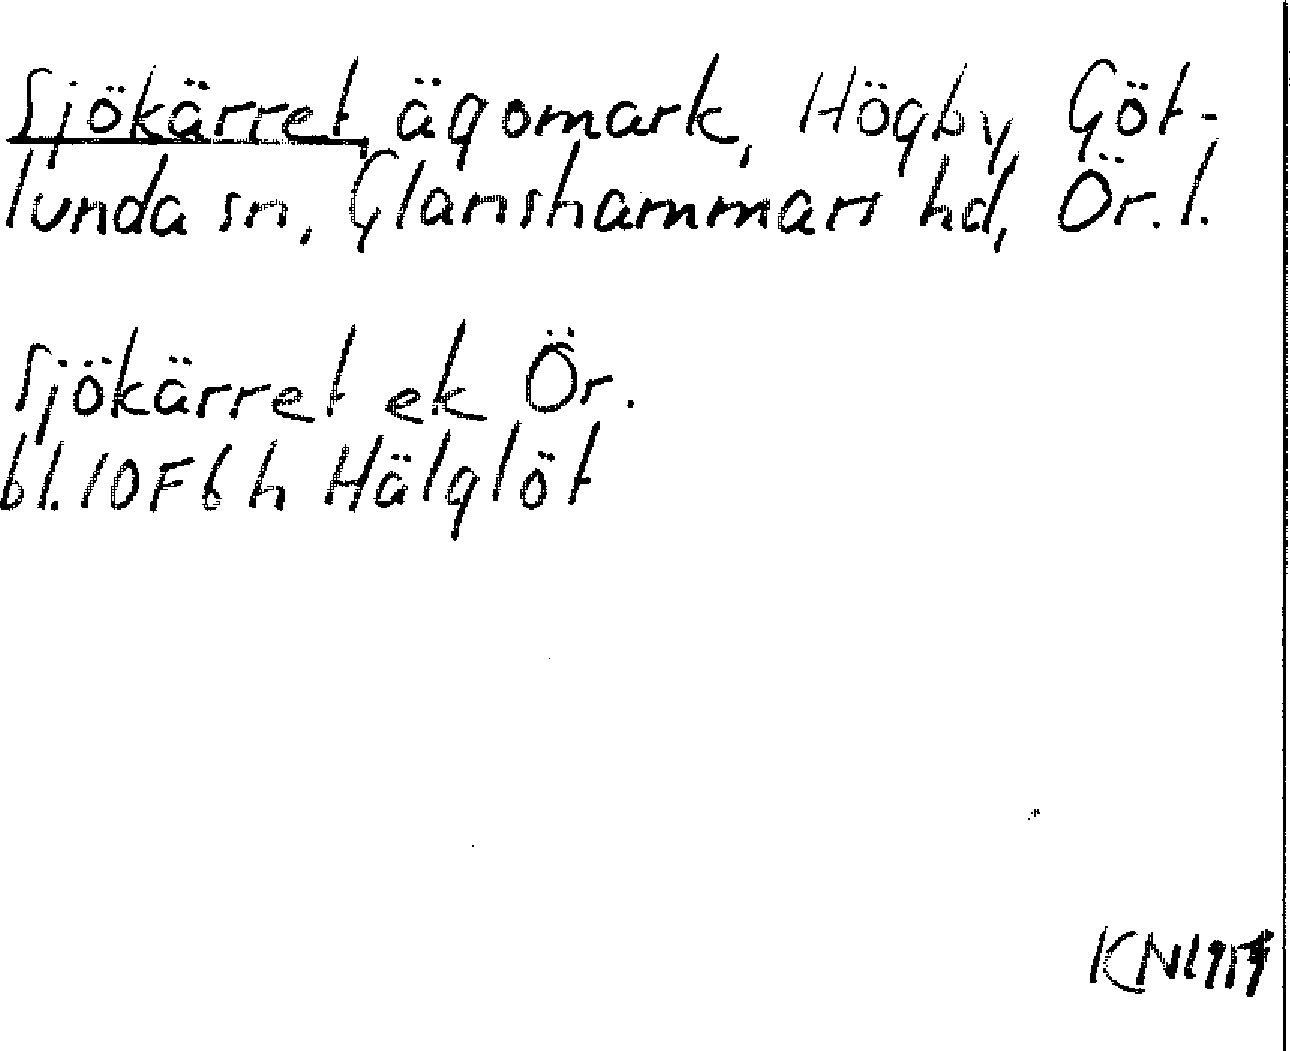 Sjökärret, ägomark, Högby, Göt-
lunda sn, Glanshammars hd, Ör. l.
Sjökärret ek Ör.
bl. 10F6h Hälglöt